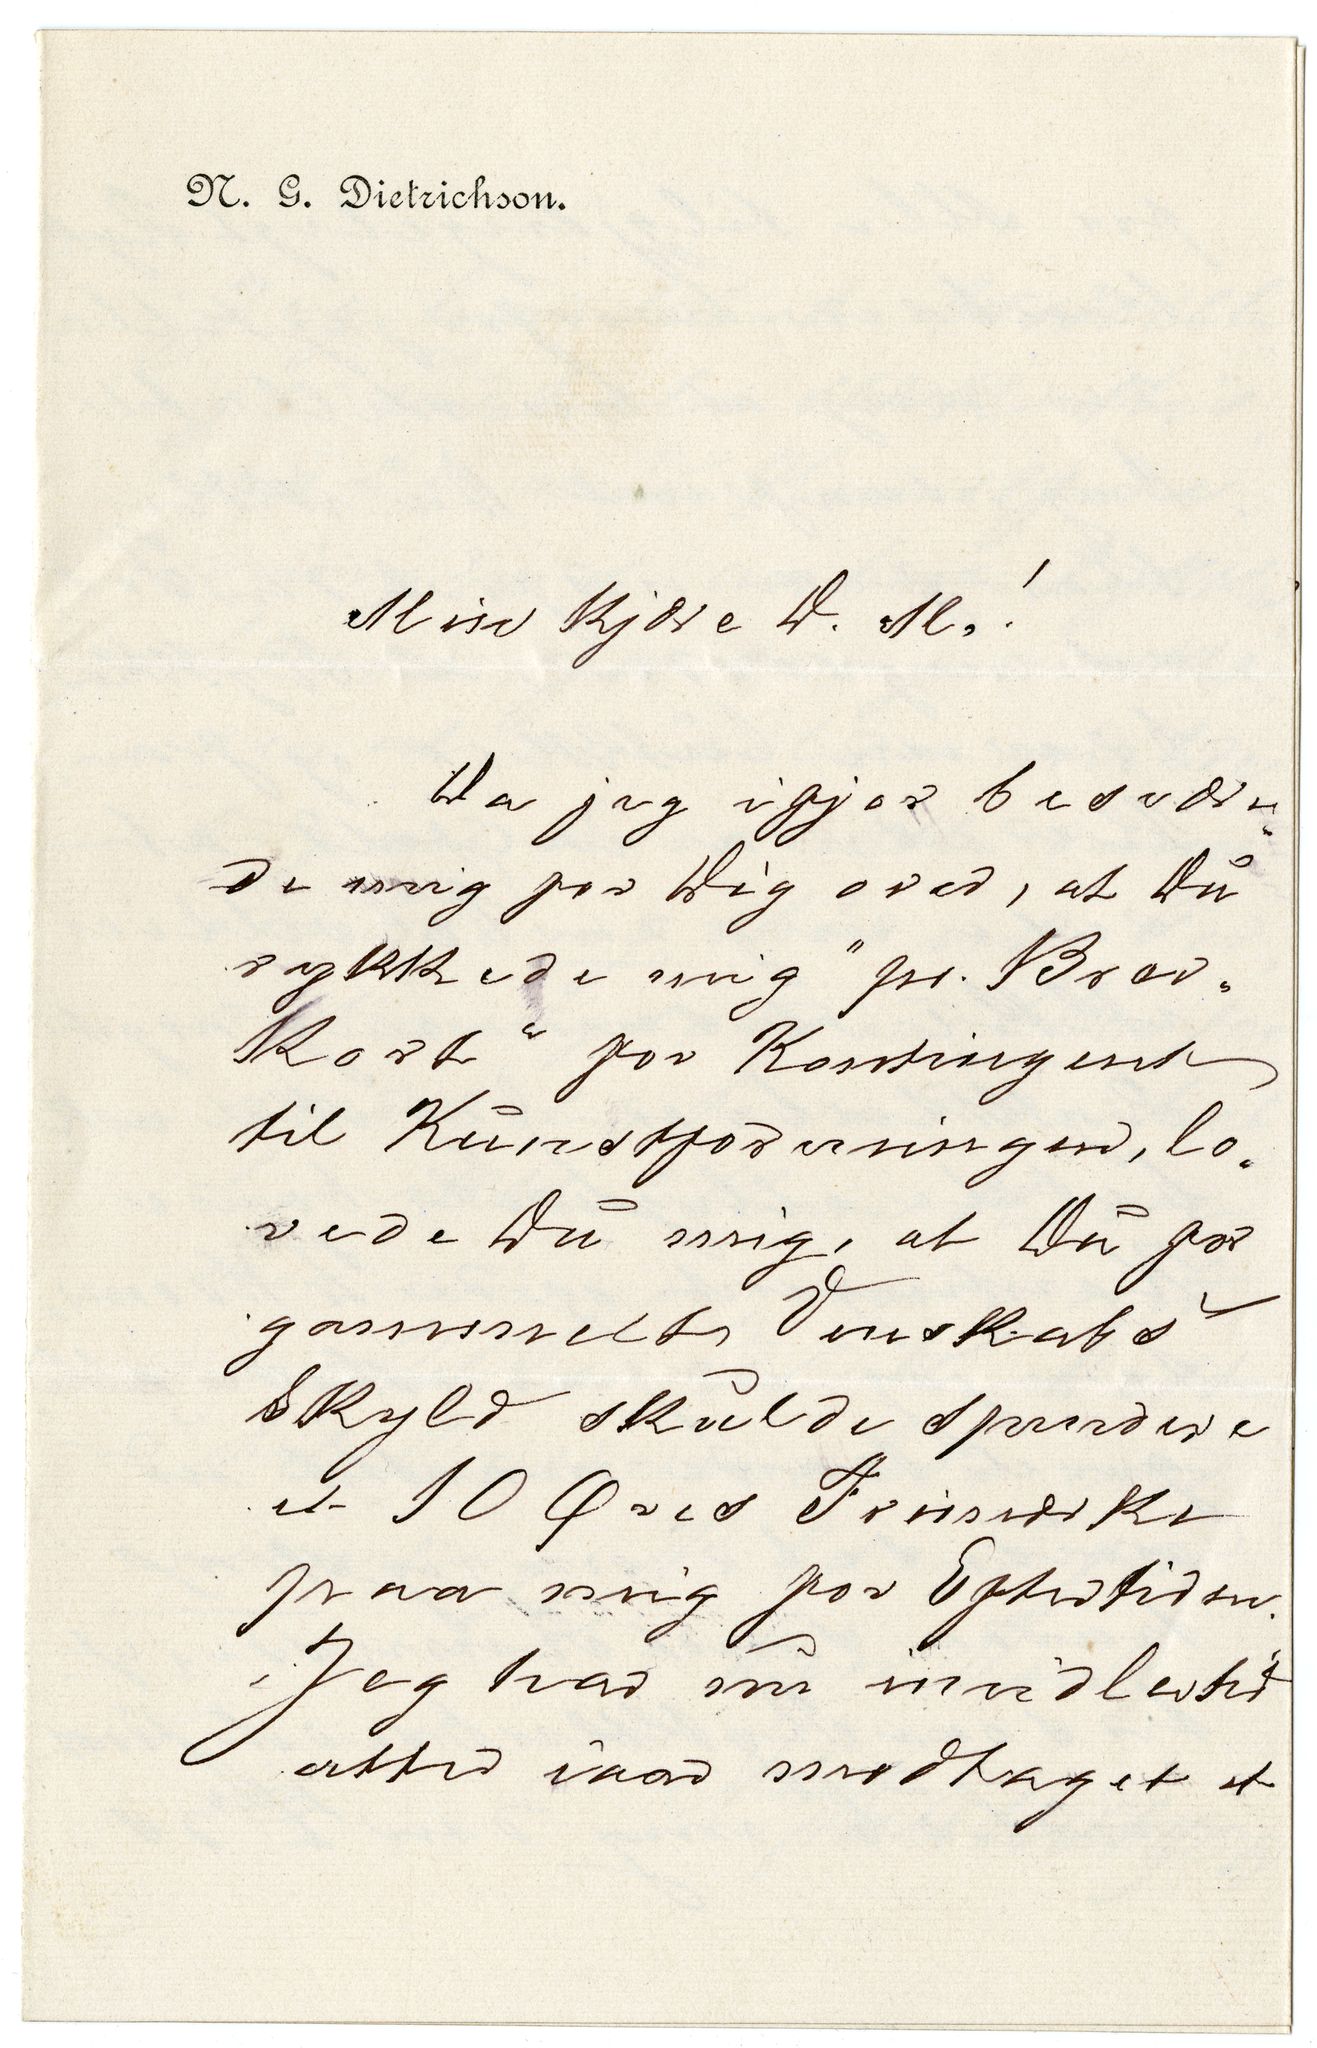 N. G. Dietrichson.
Min kjære D. M.!
Da jeg ifjor besvære-
de mig for Dig over, at Du
rykkede mig "pr. Brev-
kort" for Kontingent
til Kunstforeningen, lo-
vede Du mig, at Du for
gammelt Venskabs
Skyld skulde spendere
et 10 Øres Frimærke
paa mig for Eftertiden.
Jeg har nu imidlertid
atter iaar modtaget et